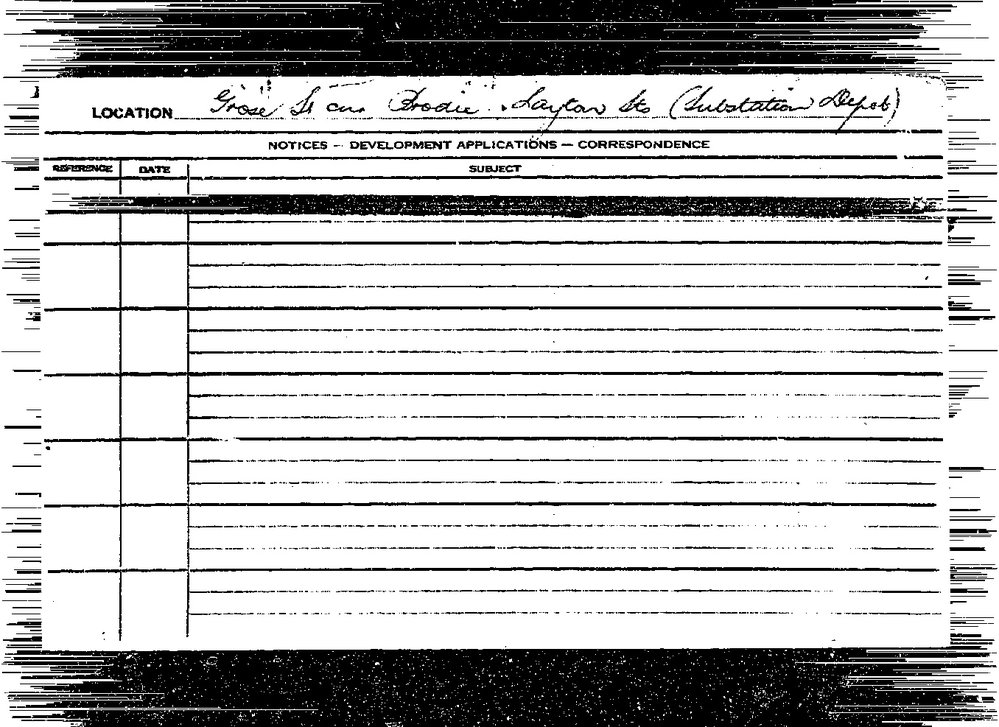 LOCATION Grose St cnr. Brodie & Layton Sts (Substation Depot)
NOTICES – DEVELOPMENT APPLICATIONS — CORRESPONDENCE
REFERENCE DATE SUBJECT